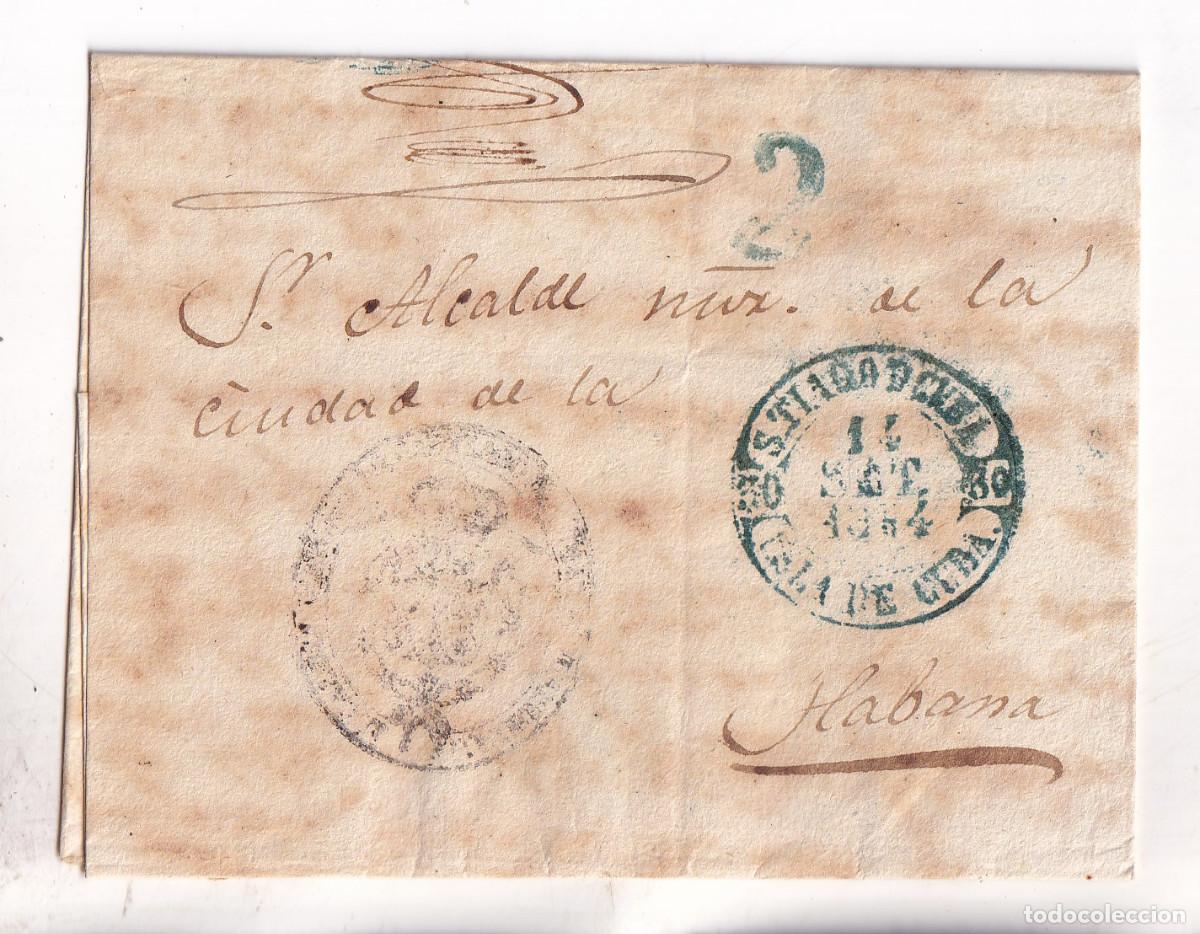 2
Sr. Alcalde mür. de la
ciudad de la
S.TIAGO DE CUBA
14
SET.
1854
30 30
ISLA DE CUBA
Habana
todocoleccion